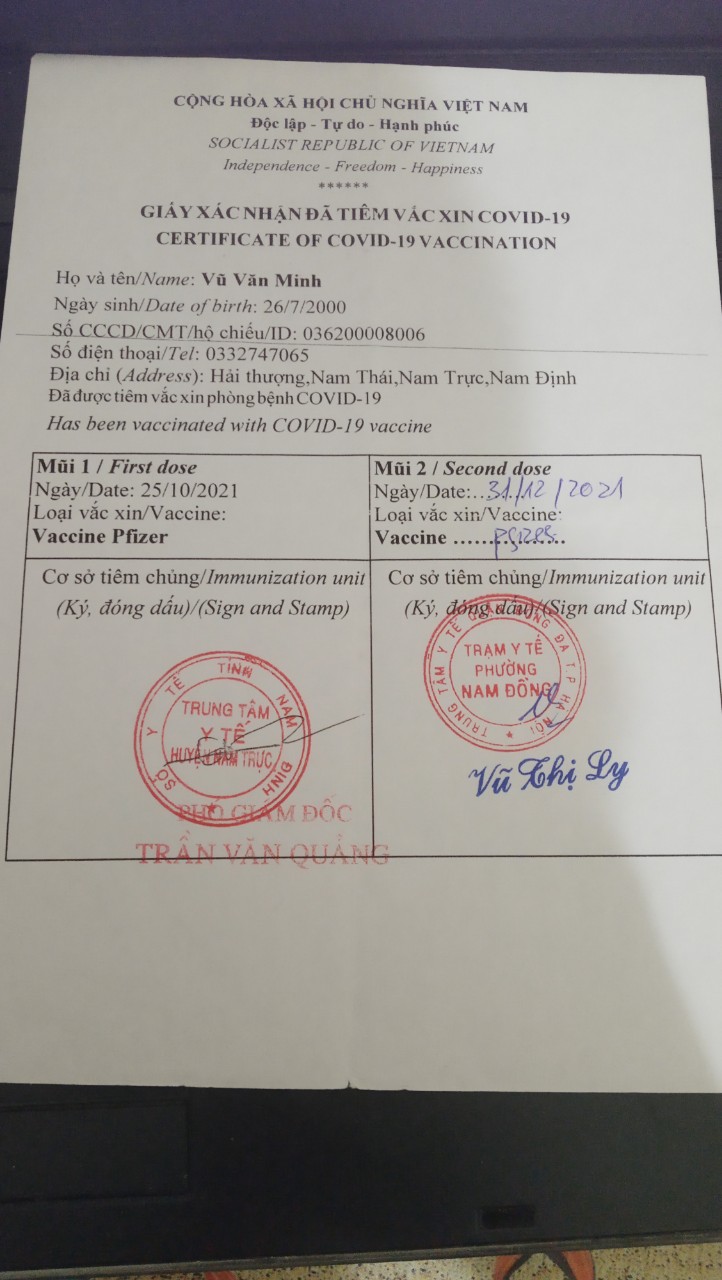 CỘNG HÒA XÃ HỘI CHỦ NGHĨA VIỆT NAM
Độc lập - Tự do - Hạnh phúc
SOCIALIST REPUBLIC OF VIETNAM
Independence - Freedom - Happiness
******
GIẤY XÁC NHẬN ĐÃ TIÊM VẮC XIN COVID-19
CERTIFICATE OF COVID-19 VACCINATION
Họ và tên/Name: Vũ Văn Minh
Ngày sinh/Date of birth: 26/7/2000
Số CCCD/CMT/hộ chiếu/ID: 036200008006
Số điện thoại/Tel: 0332747065
Địa chỉ (Address): Hải thượng,Nam Thái,Nam Trực,Nam Định
Đã được tiêm vắc xin phòng bệnh COVID-19
Has been vaccinated with COVID-19 vaccine
Mũi 1 / First dose
Ngày/Date: 25/10/2021
Loại vắc xin/Vaccine:
Vaccine Pfizer
Cơ sở tiêm chủng/Immunization unit
(Ký, đóng dấu)/(Sign and Stamp)
SỞ Y TẾ TỈNH NAM ĐỊNH
TRUNG TÂM
Y TẾ
HUYỆN NAM TRỰC
PHÓ GIÁM ĐỐC
TRẦN VĂN QUẢNG
Mũi 2 / Second dose
Ngày/Date: 31/12/2021
Loại vắc xin/Vaccine:
Vaccine
Cơ sở tiêm chủng/Immunization unit
(Ký, đóng dấu)/(Sign and Stamp)
TRUNG TÂM Y TẾ QUẬN ĐỐNG ĐA T.P HÀ NỘI
TRẠM Y TẾ
PHƯỜNG
NAM ĐỒNG
Vũ Thị Ly